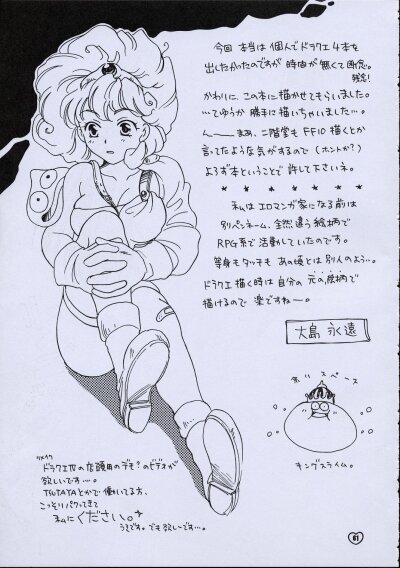 今回 本当は 個人で ドラクエ4本を
出したかったのですが 時間が 無くて 断念。
残念!
かわりに、この本に描かせてもらいました。
…てゆうか 勝手に 描いちゃいました…。
んーーまあ、二階堂も FF10 描くとか
言ってたような気がするので (ホントか?)
よろず本ということで 許して下さいネ。
★ ★ ★ ★ ★ ★ ★ ★
私は エロマンガ家になる前は
別ペンネーム、全然違う絵柄で
RPG系で 活動していたのです。
等身もタッチも あの頃とは 別人のよう…。
ドラクエ描く時は 自分の 元の絵柄で
描けるので 楽ですねー。
大島 永遠
スペース
キングスライム。
リメイク
ドラクエⅣの店頭用のデモ?のビデオが
欲しいです…。
TSUTAYAとかで 働いてる方、
こっそりパクってきて
私にください。
うそです。でも欲しいです…。
61